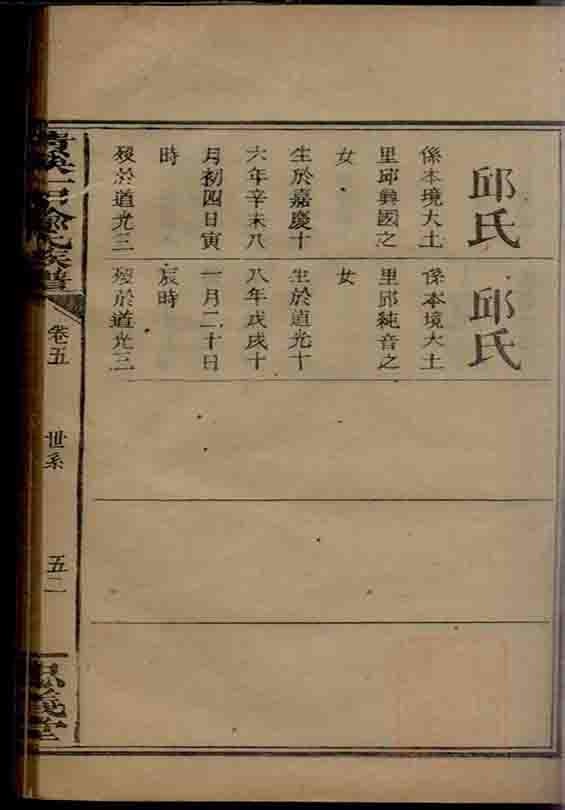 邱氏
係本境大土
里邱彝國之
女
生於嘉慶十
六年辛未八
月初四日寅
時
歿於道光三
邱氏
係本境大土
里邱純音之
女
生於道光十
八年戊戌十
一月二十日
辰時
歿於道光三
氏族譜
卷五
世系
五二
忠義堂